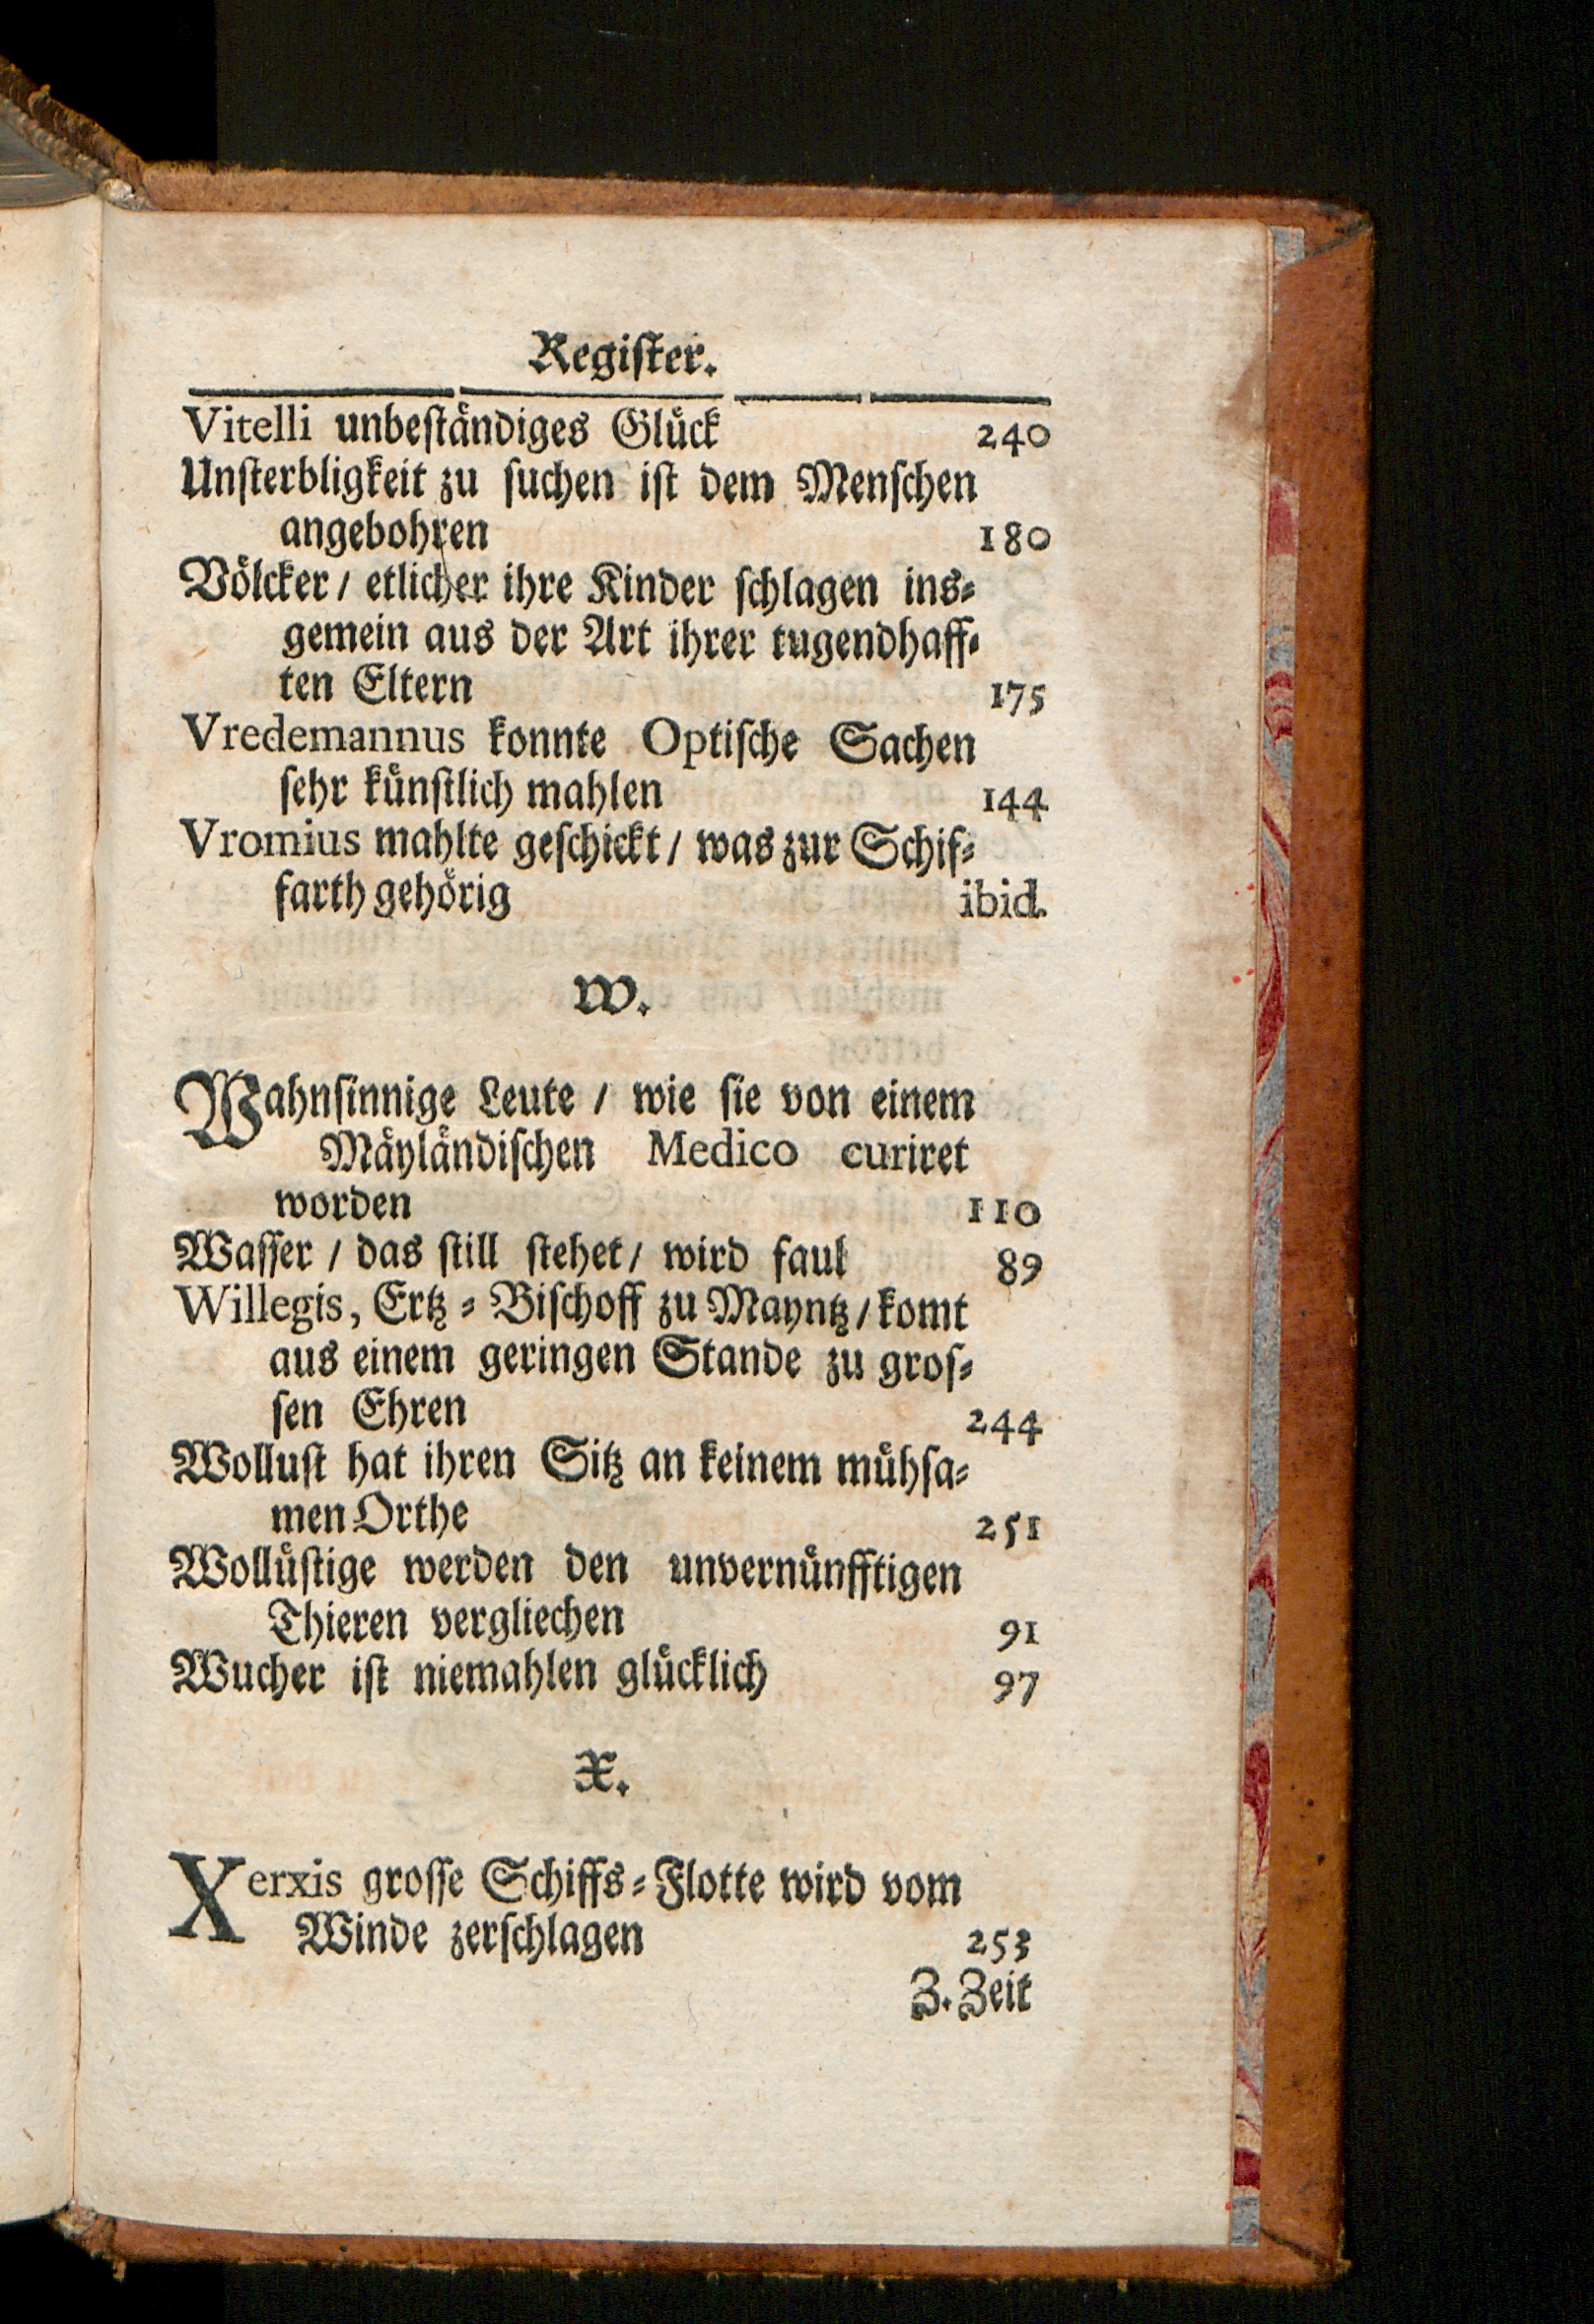 Regiſter.
Vitelli unbeſtaͤndiges Gluͤck 240
Unſterbligkeit zu ſuchen iſt dem Menſchen
angebohren 180
Voͤlcker / etlicher ihre Kinder ſchlagen ins⸗
gemein aus der Art ihrer tugendhaff⸗
ten Eltern 175
Vredemannus konnte Optiſche Sachen
ſehr kuͤnſtlich mahlen 144
Vromius mahlte geſchickt / was zur Schif⸗
farth gehoͤrig ibid.
W.
Wahnſinnige Leute / wie ſie von einem
Maͤylaͤndiſchen Medico curiret
worden 110
Waſſer / das ſtill ſtehet / wird faul 89
Willegis, Ertz⸗Biſchoff zu Mayntz / komt
aus einem geringen Stande zu groſ⸗
ſen Ehren 244
Wolluſt hat ihren Sitz an keinem muͤhſa⸗
men Orthe 251
Wolluͤſtige werden den unvernuͤnfftigen
Thieren vergliechen 91
Wucher iſt niemahlen gluͤcklich 97
X.
Xerxis groſſe Schiffs⸗Flotte wird vom
Winde zerſchlagen 253
Z. Zeit